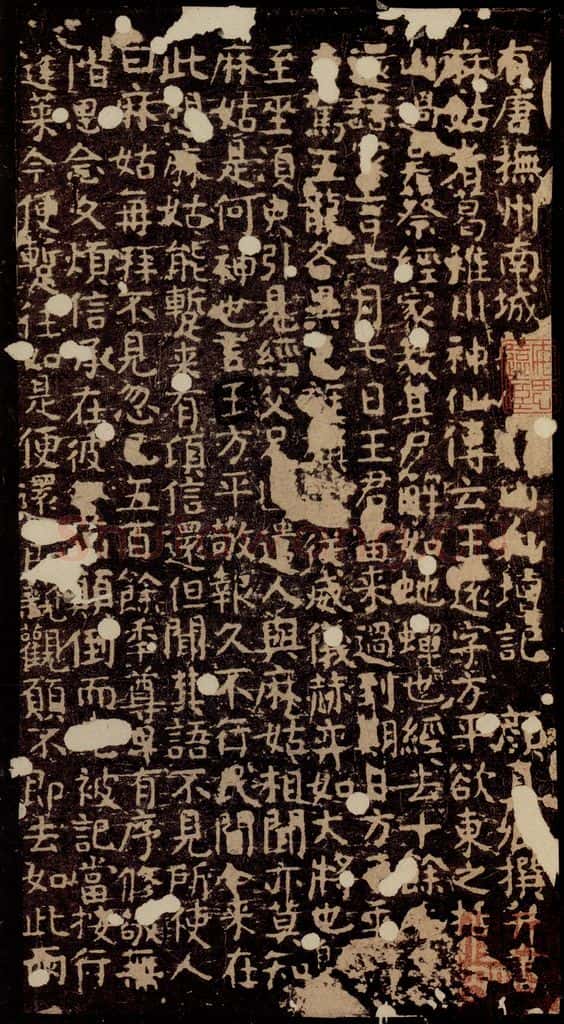 有唐撫州南城山仙壇記 顏真卿撰并書
麻姑者葛稚川神仙傳云王遠字方平欲東之括
山過吳蔡經家教其尸解如虵蟬也經去十餘
還語家言七月七日王君當來過到期日方平
駕五龍各異色旌旗從威儀赫弈如大將也
至坐須臾引見經父兄遣人與麻姑相聞亦莫知
麻姑是何神也言王方平敬報久不行民間今來在
此想麻姑能蹔來有頃信還但聞其語不見所使人
曰麻姑再拜不見忽已五百餘季尊卑有序修敬無
階思念久煩信承在彼顛倒而被記當按行
蓬萊今便蹔往如是便還親觀願不即去如此兩